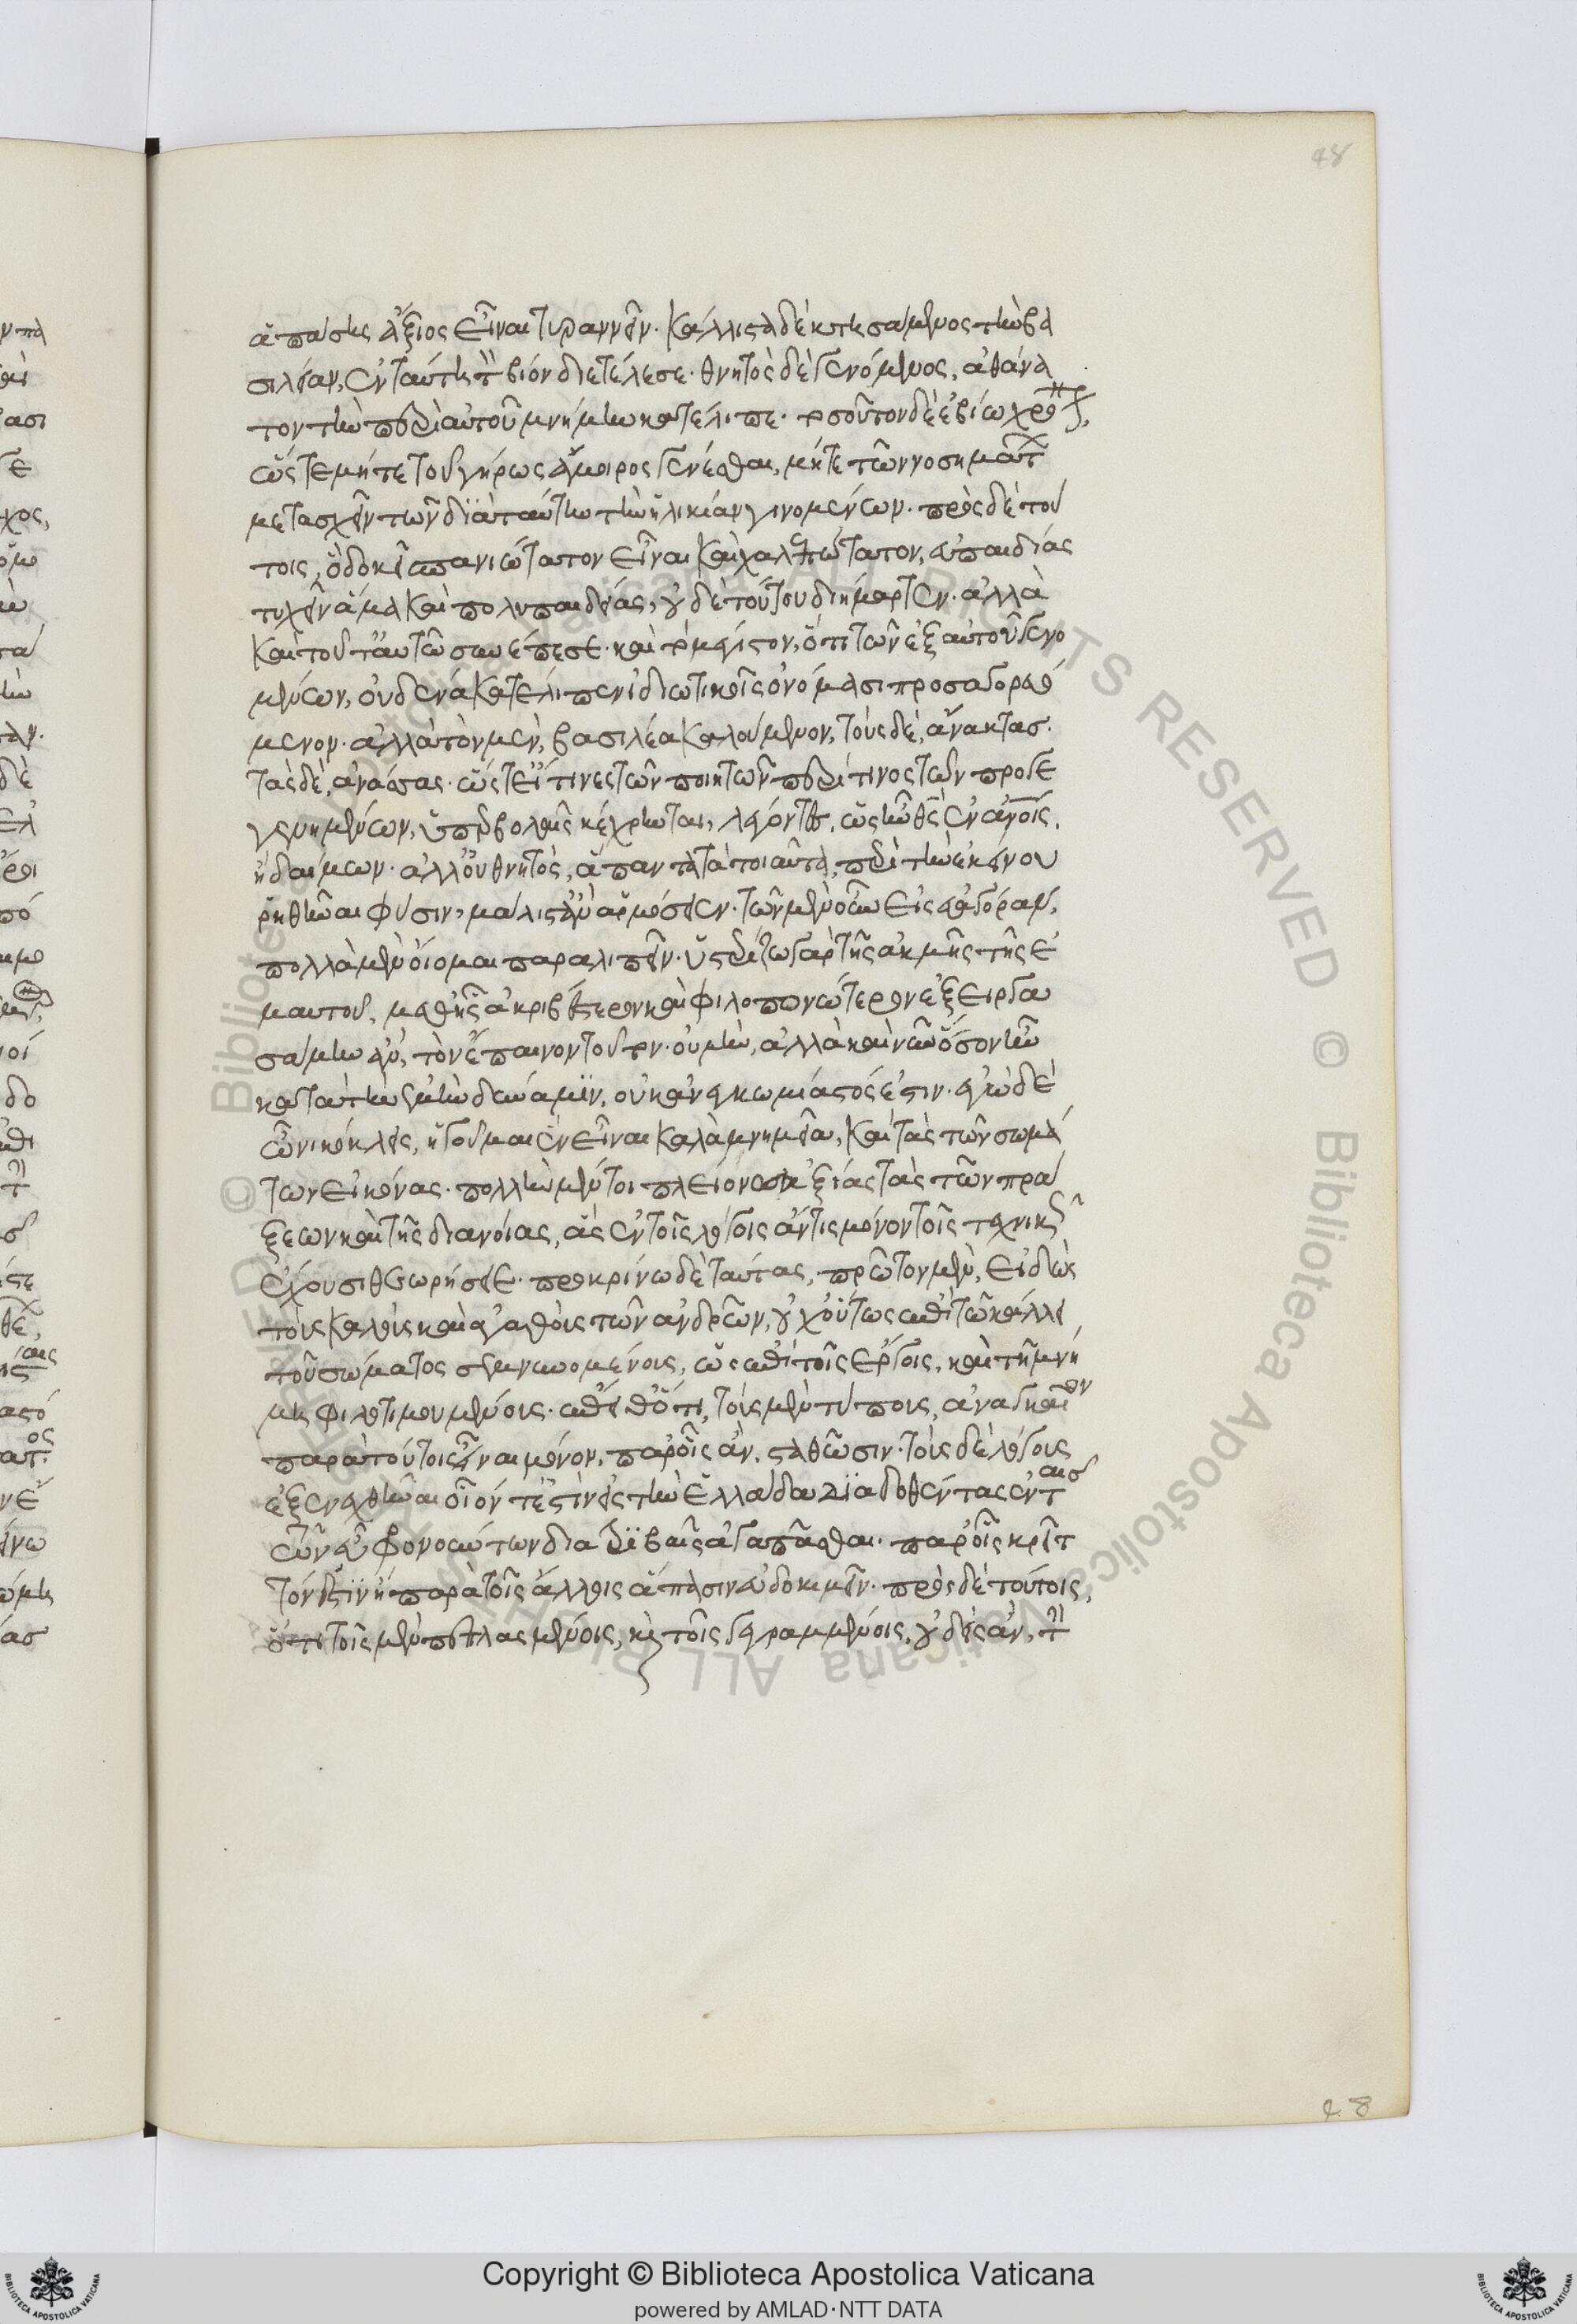 ἁπάσης ἄξιος εἶναι τυραννεῖν. κάλλιστα δὲ κτησάμενος τὴν βα
σιλείαν, ἐν ταύτῃ τὸν βίον διετέλεσε. θνητὸς δὲ γενόμενος, ἀθάνα
τον τὴν περὶ αὐτοῦ μνήμην κατέλιπε. τοσοῦτον δὲ ἐβίω χρόνον,
ὥστε μήτε τοῦ γήρως ἄμοιρος γενέσθαι, μήτε τῶν νοσημάτων
μετασχεῖν τῶν διὰ ταύτην τὴν ἡλικίαν γινομένων. πρὸς δὲ τού
τοις, ὃ δοκεῖ σπανιώτατον εἶναι καὶ χαλεπώτατον, εὐπαιδίας
τυχεῖν ἅμα καὶ πολυπαιδείας, οὐδὲ τούτου διήμαρτεν. ἀλλὰ
καὶ τοῦτ' αὐτῷ συνέπεσε. καὶ τὸ μέγιστον, ὅτι τῶν ἐξ αὐτοῦ γενο
μένων, οὐδένα κατέλιπεν ἰδιωτικοῖς ὀνόμασι προσαγορευό
μενον. ἀλλὰ τὸν μὲν, βασιλέα καλούμενον, τοὺς δὲ, ἄνακτας.
τὰς δὲ, ἀνάσσας. ὥστ' εἴ τινες τῶν ποιητῶν περί τινος τῶν προγε
γενημένων, ὑπερβολαῖς κέχρηνται, λέγοντες, ὡς ἦν θεὸς ἐν ἀνθρώποις,
ἢ δαίμων. ἀλλ' οὐ θνητὸς, ἅπαντα τὰ τοιαῦτα, περὶ τὴν ἐκείνου
ῥηθῆναι φύσιν, μάλιστ' ἂν ἁρμόσειεν. τῶν μὲν οὖν εἰς εὐαγόραν,
πολλὰ μὲν οἴομαι παραλιπεῖν. ὑστερίζω γὰρ τῆς ἀκμῆς τῆς ἐ
μαυτοῦ, μεθ' ἧς ἀκριβέστερον καὶ φιλοπονώτερον ἐξειργα
σάμην ἂν, τὸν ἔπαινον τοῦτον. οὐ μὴν, ἀλλὰ καὶ νῦν ὅσον ἦν
κατὰ τὴν ἐμὴν δύναμιν, οὐκ ἀνεγκωμίαστός ἐστιν. ἐγὼ δὲ
ὦ νικόκλεις, ἡγοῦμαι ἓν εἶναι καλὰ μνημεῖα, καὶ τὰς τῶν σωμά
των εἰκόνας. πολλὴν μέντοι πλείονος ἀξίας τὰς τῶν πρά
ξεων καὶ τῆς διανοίας, ἃς ἐν τοῖς λόγοις ἄν τις μόνον τοῖς τεχνικῶς
ἔχουσι θεωρήσειε. προκρίνω δὲ ταύτας, πρῶτον μὲν, εἰδὼς
τοὺς καλοὺς καὶ ἀγαθοὺς τῶν ἀνδρῶν, οὐχ οὕτως ἐπὶ τῷ κάλλει
τοῦ σώματος σεμνυνομένους, ὡς ἐπὶ τοῖς ἔργοις, καὶ τῇ γνώ
μῃ φιλοτιμουμένους. ἔπειθ' ὅτι, τοὺς μὲν τύπους, ἀναγκαῖον
παρὰ τούτοις εἶναι μόνον, παρ' οἷς ἂν, σταθῶσιν. τοὺς δὲ λόγους
ἐξενεχθῆναι οἷόν τ' ἐστὶν εἰς τὴν Ἑλλάδα διαδοθέντας ἐν ταῖς
τῶν εὖ φρονούντων διατριβαῖς ἀγαπᾶσθαι. παρ' οἷς κρεῖτ
τόν ἐστιν ἢ παρὰ τοῖς ἄλλοις ἅπασιν εὐδοκιμεῖν. πρὸς δὲ τούτοις,
ὅτι τοῖς μὲν πεπλασμένοις, καὶ τοῖς γεγραμμένοις, οὐδεὶς ἂν, τὴν
48
48